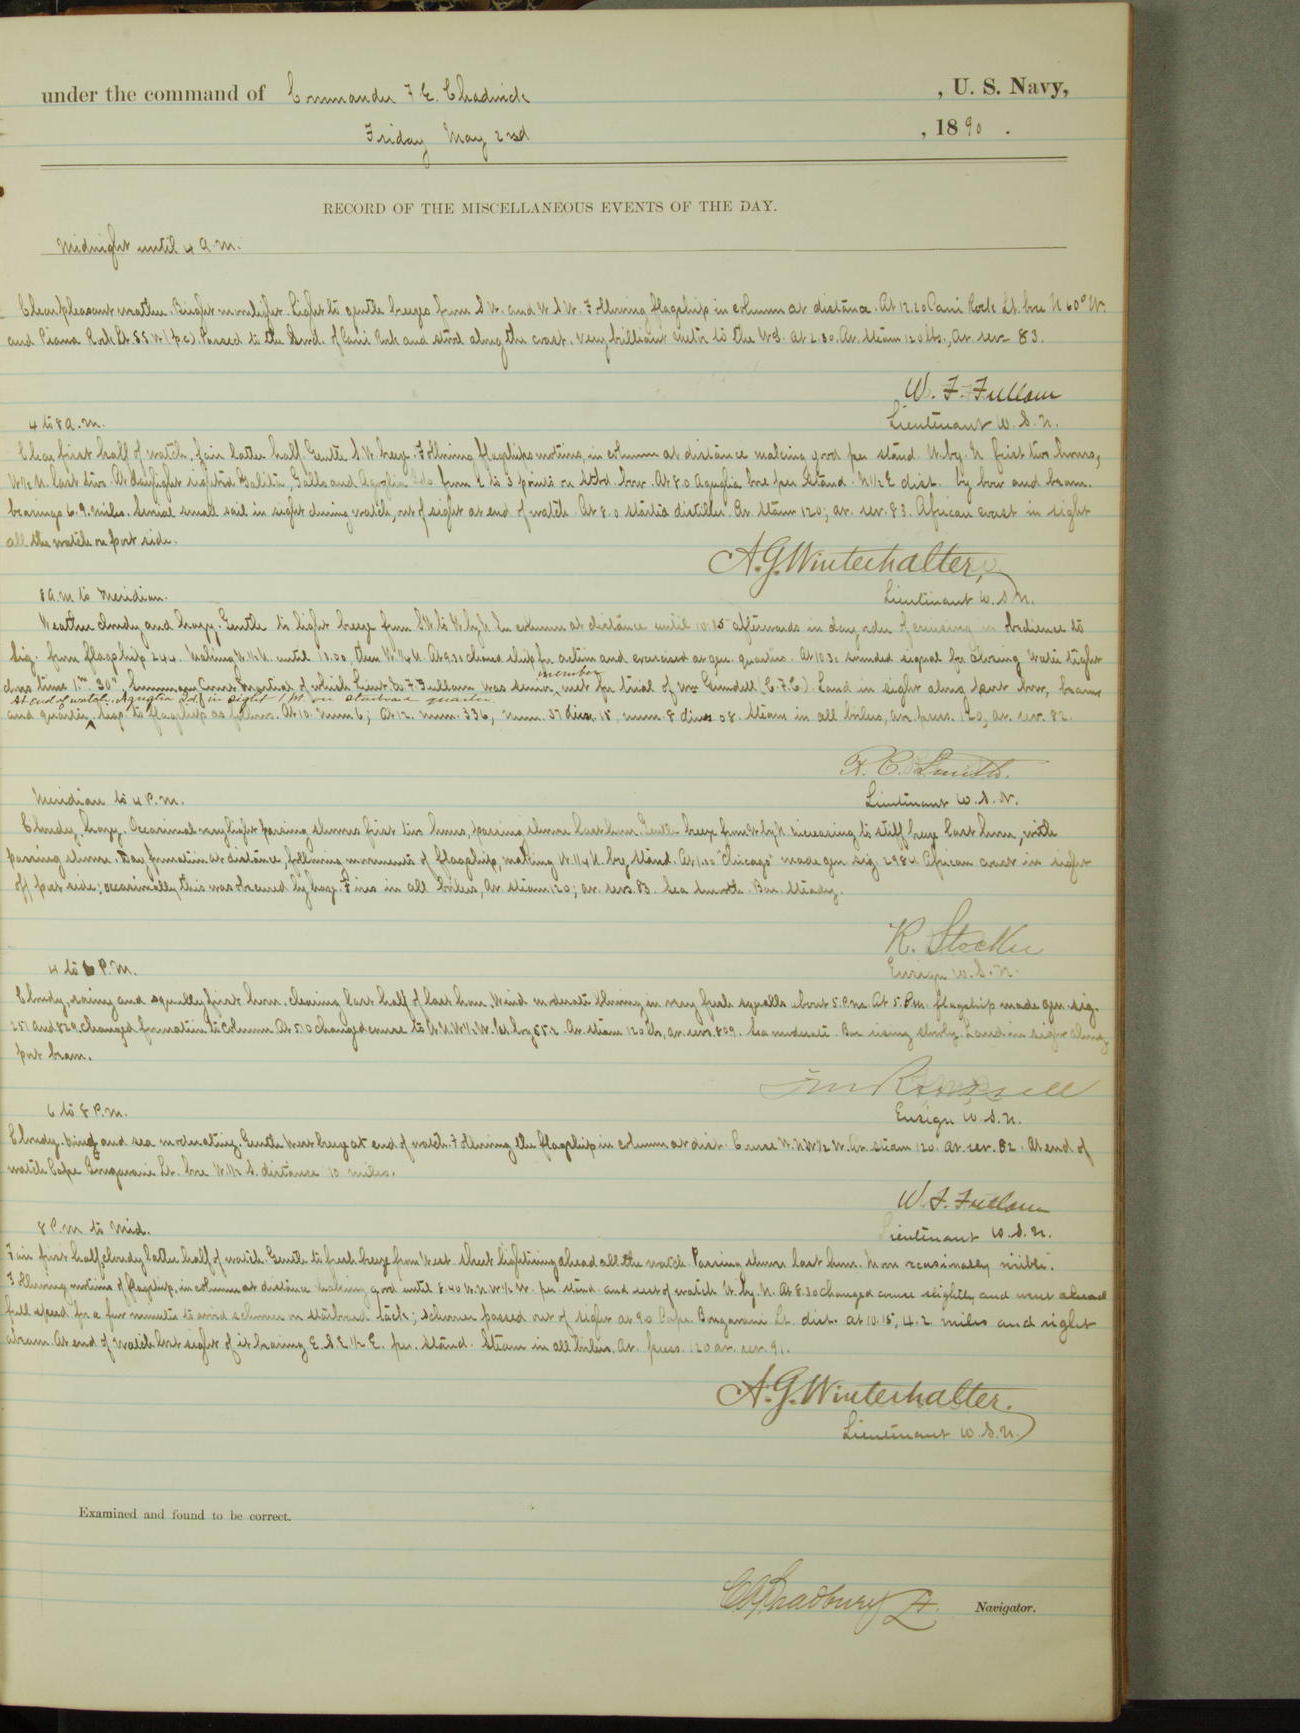 under the command of Commander F. E. Chadwick , U. S. Navy,
Friday May 2nd , 1890 .
RECORD OF THE MISCELLANEOUS EVENTS OF THE DAY.
Midnight until 4 a.m.
Clear pleasant weather. Bright moonlight. Light to gentle breezes from S.W. and W.S.W. Following flagship in column at distance. At 12.20 Cani Rock Lt. bore N 60° W.
and Piana Rock Lt. (p.c.). Passed to the of Cani Rock and stood along the coast. Very brilliant meteor to the at 2.30. Av. steam 120 lbs., Av. rev. 83.
W. F. Fullam
Lieutenant U.S.N.
4 to 8 a.m.
Clear first half of watch, fair latter half. Gentle S.W. breeze. Following flagships motions, in column at distance making good per stand. W. by. N. first two hours,
W½N. last two. At daylight sighted Galita, Gallo and from 2 to 3 points on stbd. bow. At 8.0 Aguglia bore per stand. N½E dist. by bow and beam.
bearings 6.9. miles. Several small sail in sight during watch, out of sight at end of watch. At 8.0 started distiller. Av. steam 120; av. rev. 83. African coast in sight
all the watch on port side.
A. G. Winterhalter,
Lieutenant U.S.N.
8 a.m. to Meridian.
Weather cloudy and hazy. Gentle to light breeze from S.W. to W. by N. In column at distance until 10.15 afterwards in day order of cruising in obedience to
sig. from flagship 244. Making until 10.00, then At 9.30 cleared ship for action and exercised at gen. quarters. At 10.30 sounded signal for closing water tight
doors time 1m 30s Summary Court Martial of which Lieut. W. F. Fullam was senior member, met for trial of Wm (C.F.C.). Land in sight along port bow, beam
at end of watch. in sight on starboard quarter.
and quarter, to flagship as follows. At 10. num. 6; At 12. num. 336, num. 37 15, num. 8 08. Steam in all boilers, av. press. 120, av. rev. 82.
R. C. Smith.
Lieutenant U.S.N.
Meridian to 4 P.M.
Cloudy, hazy. Occasional very light passing showers first two hours, passing shower last hour. Gentle breeze from W. by N. increasing to stiff breeze last hour, with
passing shower. Day formation at distance, following movements of flagship, making W.¼N. by stand. At 1.00 "Chicago" made gen. sig. 2984 African coast in sight
off port side; occasionally this was obscured by haze. Fires in all boilers, Av. steam 120; av. revs. 83. Sea smooth. Bar. steady.
R. Stocker
Ensign U.S.N.
4 to 6 P.M.
Cloudy, rainy and squally first hour, clearing last half of last hour. Wind moderate blowing in very fresh squalls about 5 P.M. At 5. P.M. flagship made gen. sig.
251 and 829, changed formation to column. At 5.10 changed course to W.N.W.½W. Av. steam 120 lbs, av. revs. 80.9. Sea moderate. Bar. rising slowly. Land in sight along
port beam.
Ensign U.S.N.
6 to 8 P.M.
Cloudy. Wind and sea moderating. Gentle West breeze at end of watch. Following the flagship in column at dist. Course W.N.W½W. Av. steam 120. Av. rev. 82. At end of
watch Cape Bougaroni Lt. bore W.½S. distance 10 miles.
W. F. Fullam
Lieutenant U.S.N.
8 P.M to Mid.
Fair first half, cloudy latter half of watch. Gentle to fresh breeze from West. Sheet lightning ahead all the watch. Passing shower last hour. Moon occasionally visible.
Following motions of flagship, in column at distance making good until 8.40 W.N.W½W. per stand. and rest of watch W. by. N. At 8.30 changed course slightly and went ahead
full speed for a few minutes to avoid schooner on starboard tack; schooner passed out of sight at 9.0 Cape Bougaroni Lt. dist. at 10.15, 4.2 miles and right
abeam. At end of watch lost sight of it bearing E.S.E.½E. per. stand. Steam in all boilers, Av. press. 120 av. rev. 91.
A. G. Winterhalter.
Lieutenant U.S.N.
Examined and found to be correct.
Bradbury Navigator.